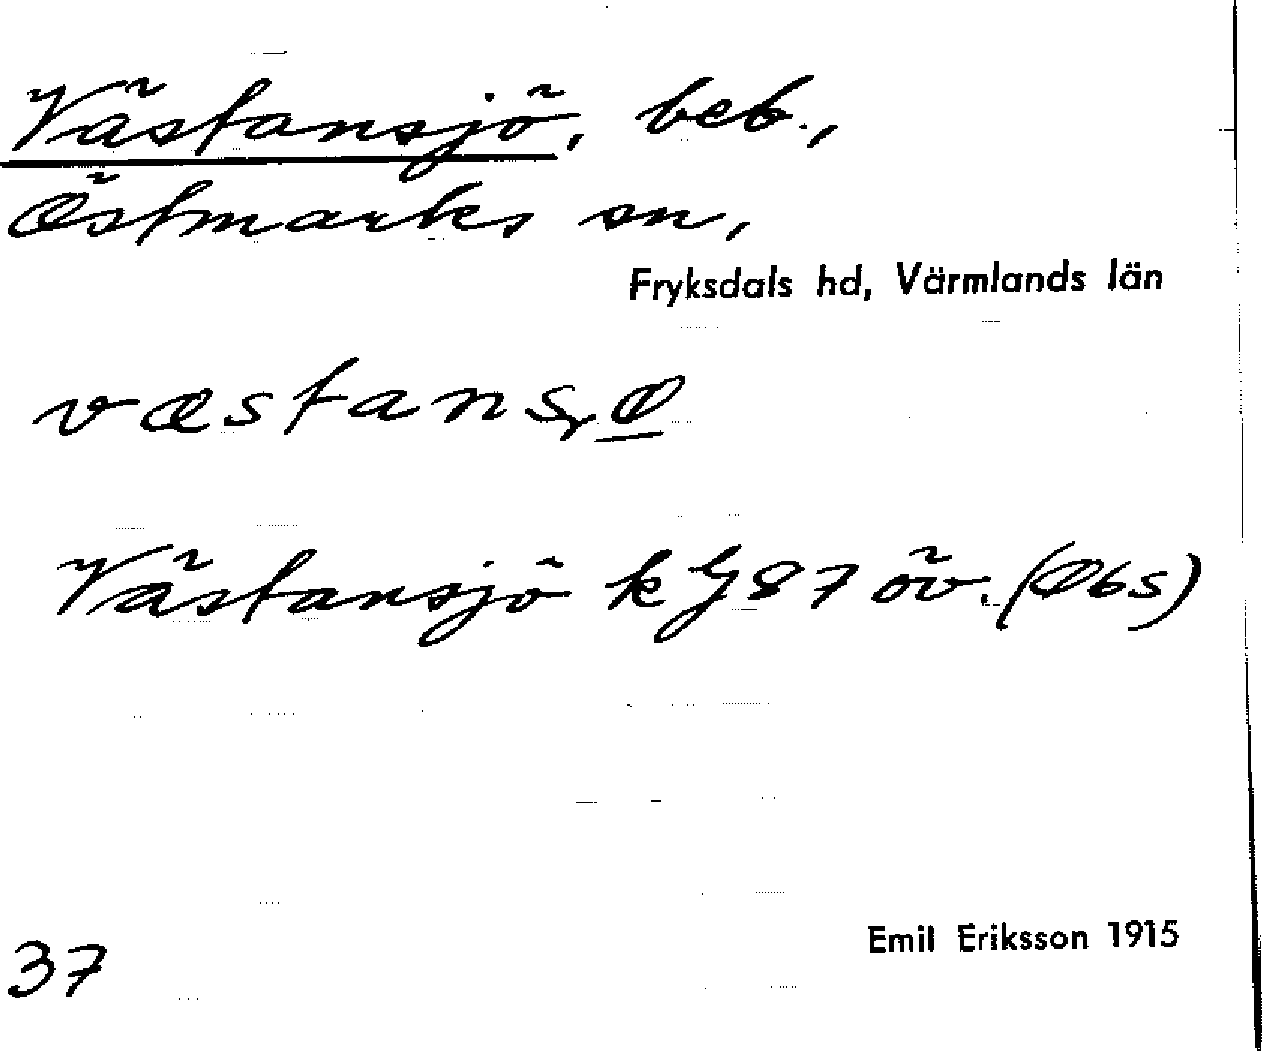 Västansjö, beb.,
Östmarks sn,
Fryksdals hd, Värmlands län
væstansø
Västansjö k G 87 öv. (Øbs)
37
Emil Eriksson 1915